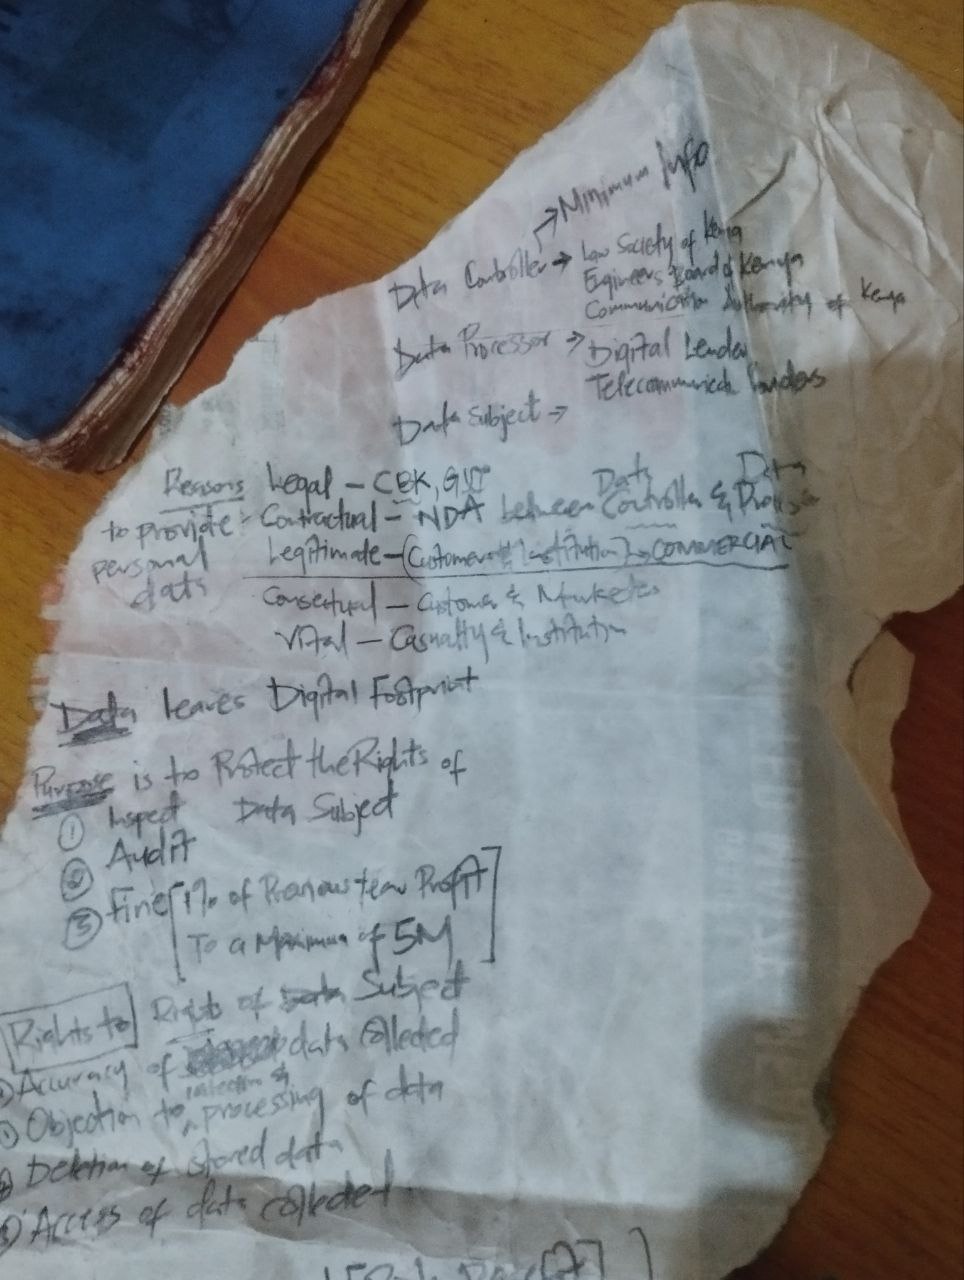 → Minimum Info
Data Controller → Law Society of Kenya
Engineers Board of Kenya
Communication Authority of Kenya
Data Processor → Digital Lender
Telecommunicatn
Data Subject →
Reasons to provide personal data:
Legal – CBK, GVT
Contractual – NDA between Data Controller & Data
Legitimate – (Customer & Institution) → COMMERCIAL
Consectual – Customer & Marketer
Vital – Casualty & Institution
Data leaves Digital Footprint
Purpose is to Protect the Rights of
Data Subject
① Inspect
② Audit
③ Fine [1% of Previous Year Profit
To a Maximum of 5M]
Rights to Rights of Data Subject
Accuracy of data collected
① Objection to collection & processing of data
Deletion of stored data
③ Access of data collected